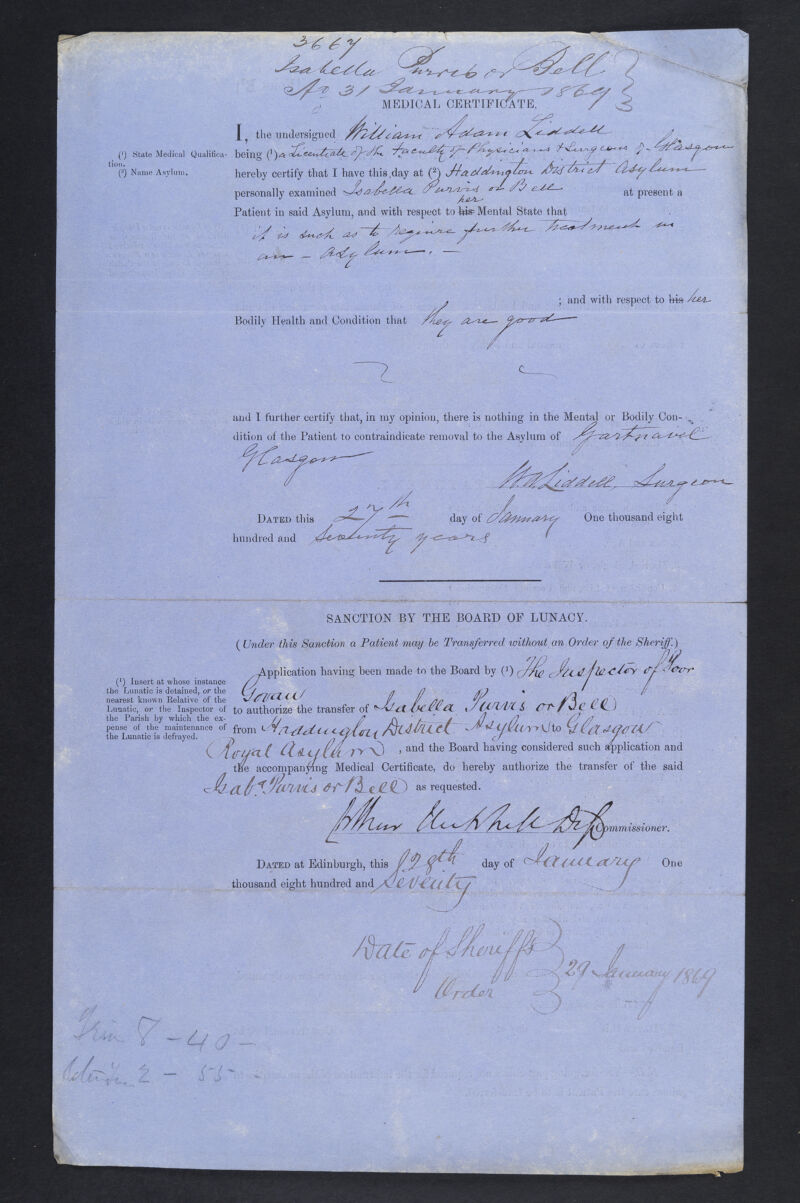 3667
Isabella Purvis or Bell
31 January 1869
MEDICAL CERTIFICATE.
I, the undersigned William Adam Liddell
(¹) State Medical Qualifica-
tion.
(²) Name Asylum.
being (¹) a Licentiate of the Faculty of Physicians & Surgeons of Glasgow
hereby certify that I have this day at (²) Haddington District Asylum
personally examined Isabella Purvis or Bell at present a
Patient in said Asylum, and with respect to his her Mental State that
it is such as to require further treatment in
an - asylum. -
; and with respect to his her
Bodily Health and Condition that they are good
and I further certify that, in my opinion, there is nothing in the Mental or Bodily Con-
dition of the Patient to contraindicate removal to the Asylum of Gartnavel
Glasgow
W. A. Liddell, Surgeon
DATED this 27th day of January One thousand eight
hundred and Seventy years
SANCTION BY THE BOARD OF LUNACY.
(Under this Sanction a Patient may be Transferred without an Order of the Sheriff.)
(¹) Insert at whose instance
the Lunatic is detained, or the
nearest known Relative of the
Lunatic, or the Inspector of
the Parish by which the ex-
pense of the maintenance of
the Lunatic is defrayed.
Application having been made to the Board by (¹) The Inspector of Poor
Govan
to authorize the transfer of Isabella Purvis or Bell
from Haddington District Asylum to Glasgow
Royal Asylum, and the Board having considered such application and
the accompanying Medical Certificate, do hereby authorize the transfer of the said
Isab.ª Purvis or Bell as requested.
Arthur Mitchell Dep Commissioner.
DATED at Edinburgh, this 28th day of January One
thousand eight hundred and Seventy
Date of Sheriff's
Order
29 January 1869
8 - 40 -
2 - 55 -